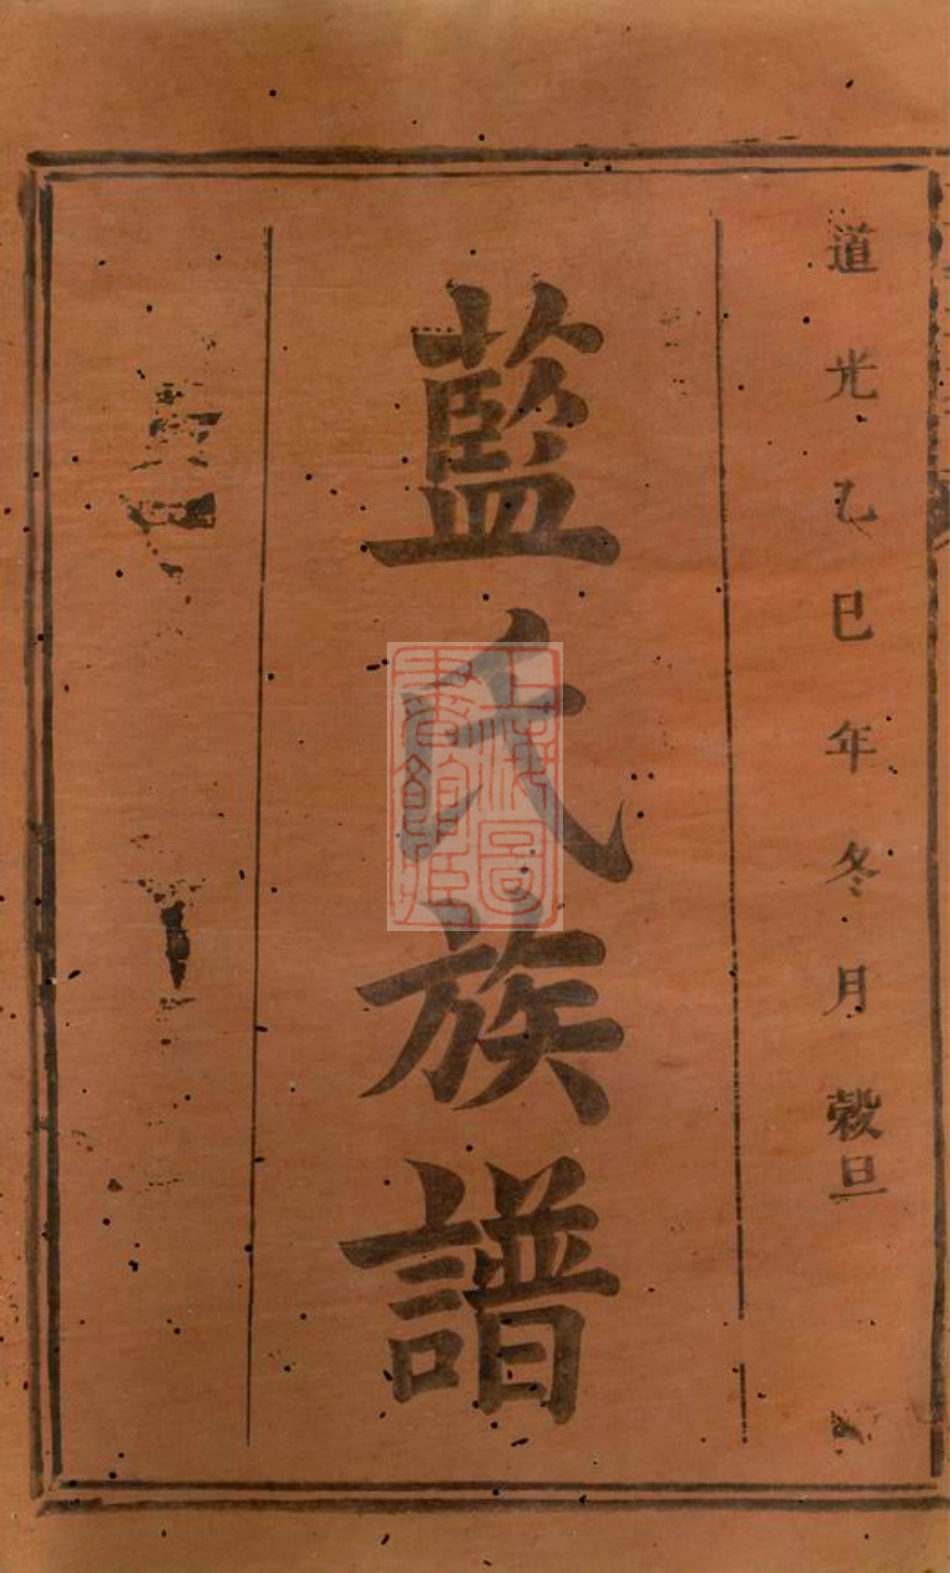 道光乙巳年冬月穀旦
藍氏族譜
上海圖書館藏